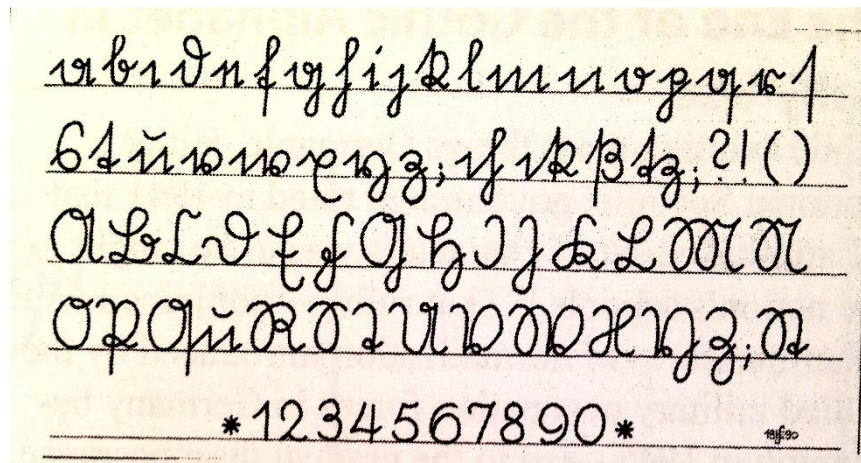 a b c d e f g h i j k l m n o p q r ſ
s t u v w x y z ; ch ck ß tz ; ? ! ( )
A B C D E F G H I J K L M N
O P Qu R S T U V W X Y Z ; St
* 1 2 3 4 5 6 7 8 9 0 *